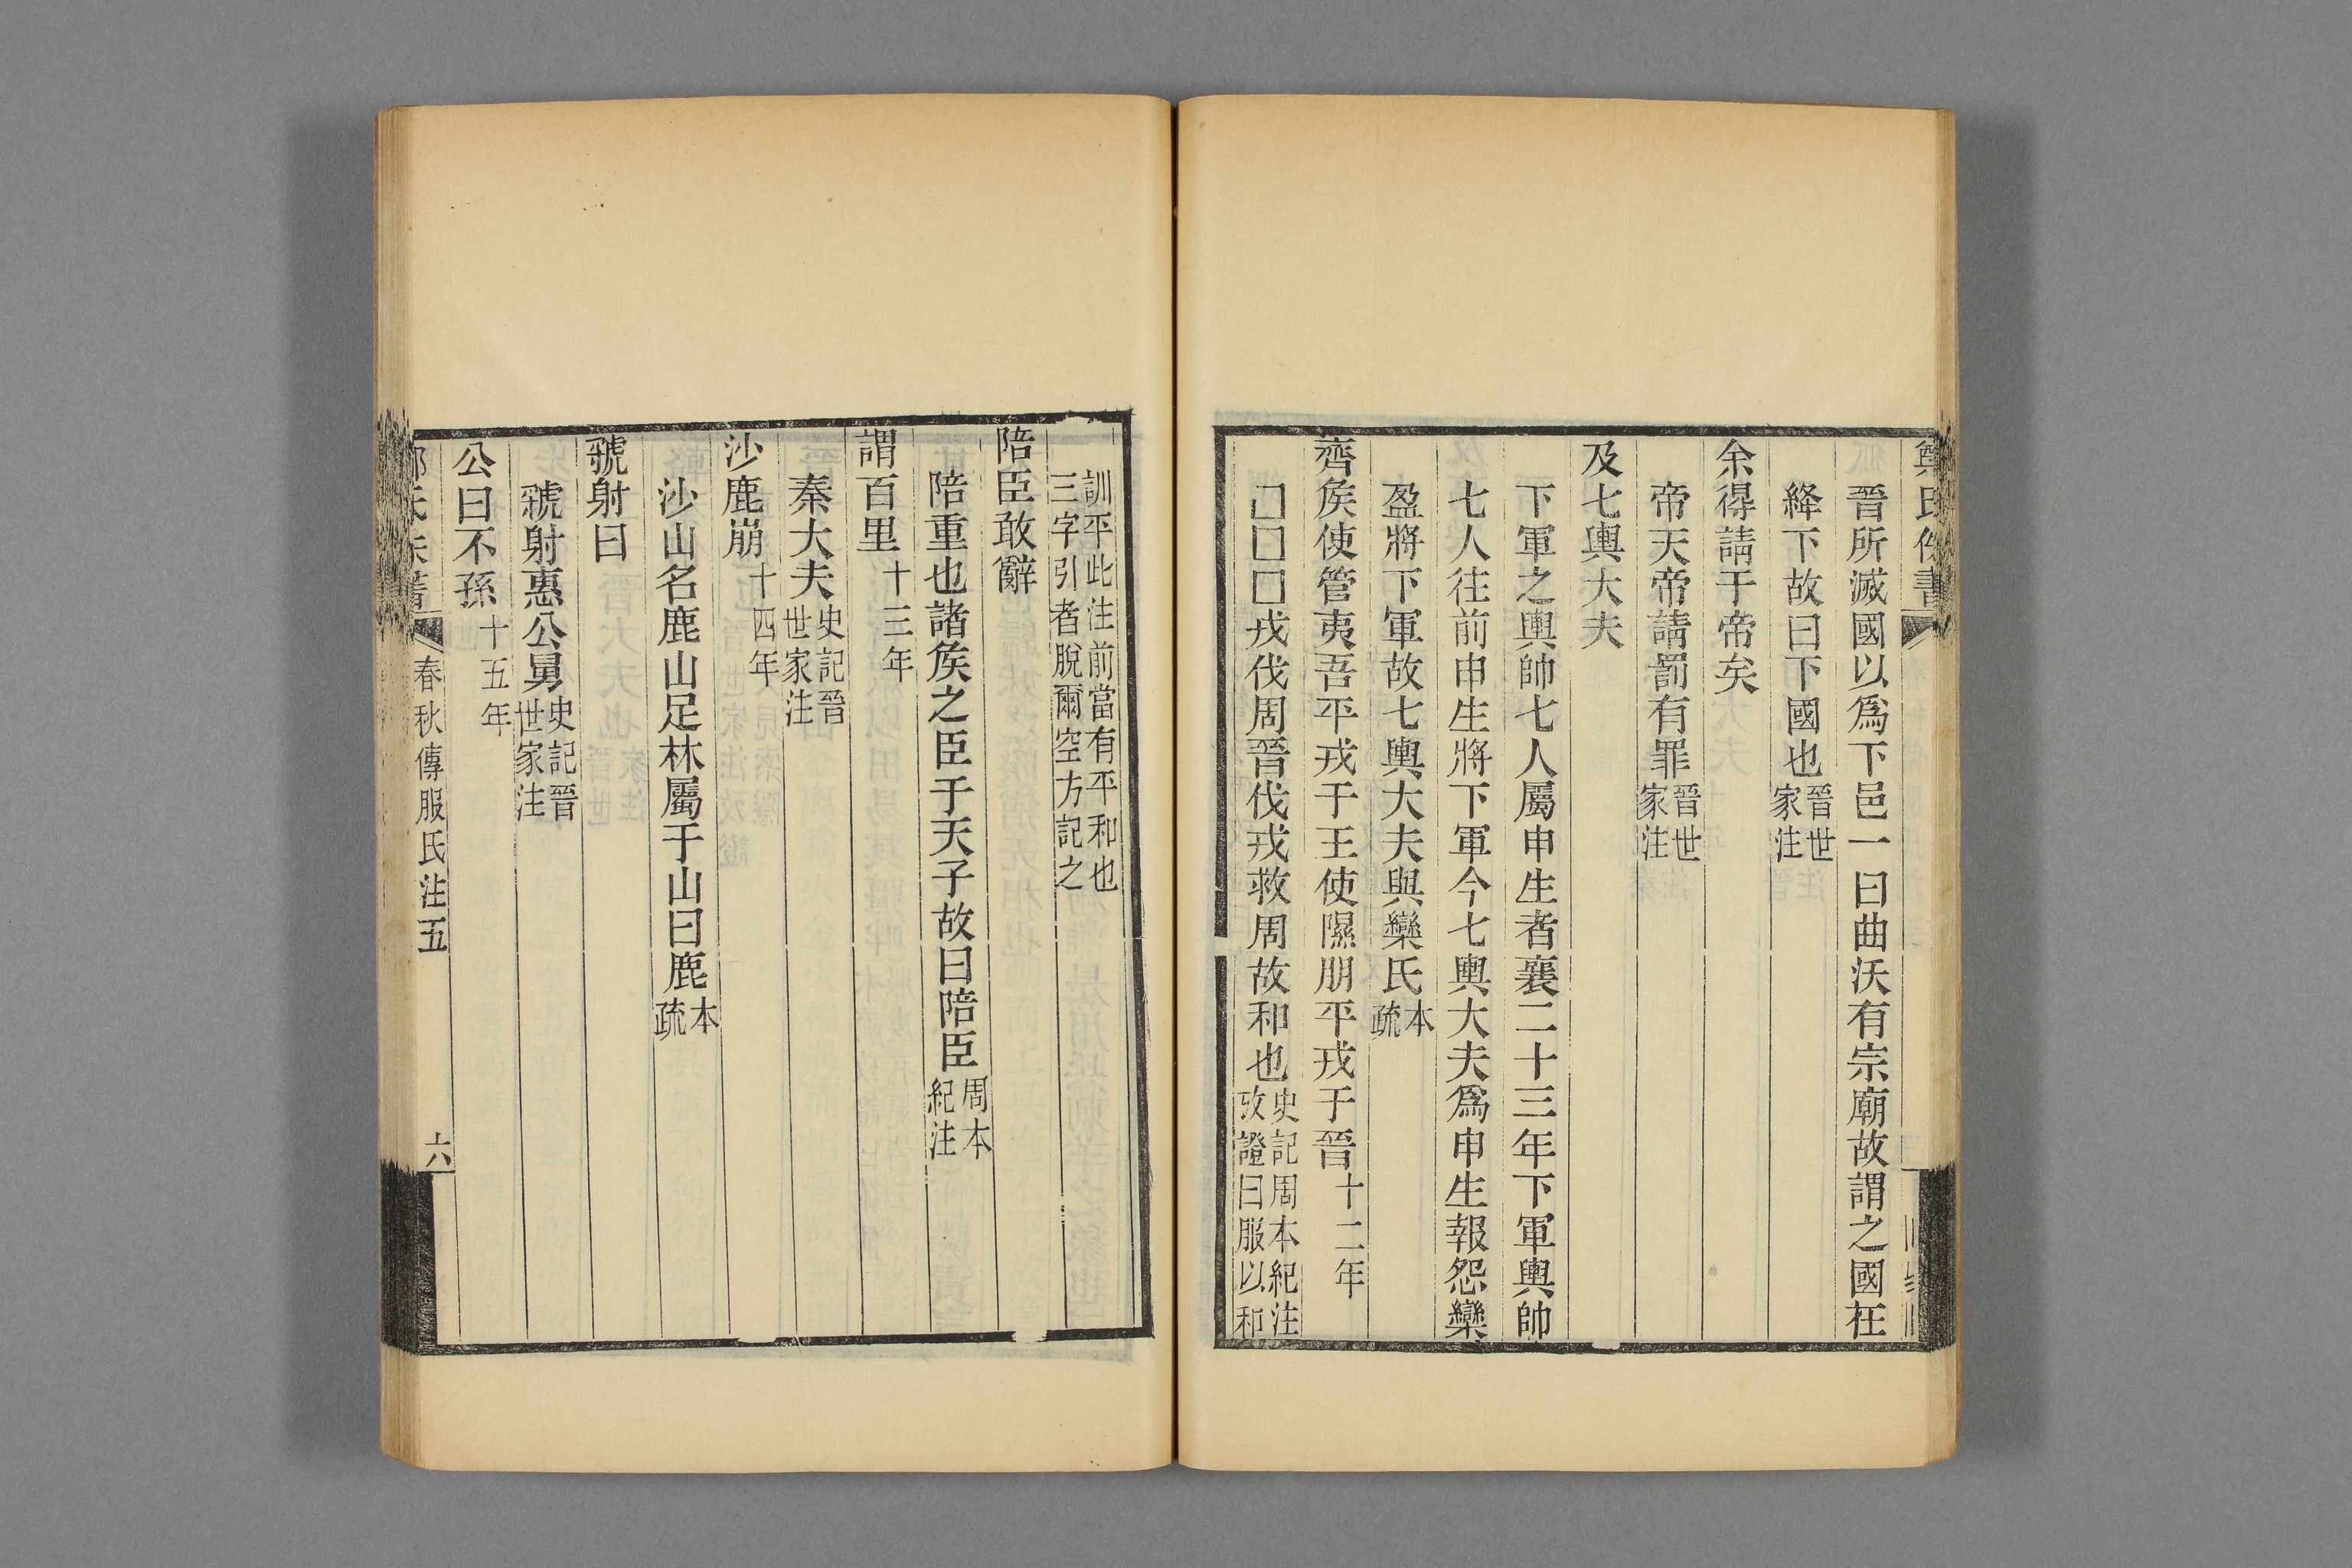 晉所滅國以爲下邑一曰曲沃有宗廟故謂之國在
絳下故曰下國也晉世家注
余得請于帝矣
帝天帝請罰有罪晉世家注
及七輿大夫
下軍之輿帥七人屬申生者襄二十三年下軍輿帥
七人往前申生將下軍今七輿大夫爲申生報怨欒
盈將下軍故七輿大夫與欒氏本疏
齊矦使管夷吾平戎于王使隰朋平戎于晉十二年
□□□戎伐周晉伐戎救周故和也史記周本紀注攷證曰服以和
訓平此注前當有平和也三字引者脫爾空方記之
陪臣敢辭
陪重也諸矦之臣于天子故曰陪臣周本紀注
謂百里十三年
秦大夫史記晉世家注
沙鹿崩十四年
沙山名鹿山足林屬于山曰鹿本疏
虢射曰
虢射惠公舅史記晉世家注
公曰不孫十五年
春秋傳服氏注五
六